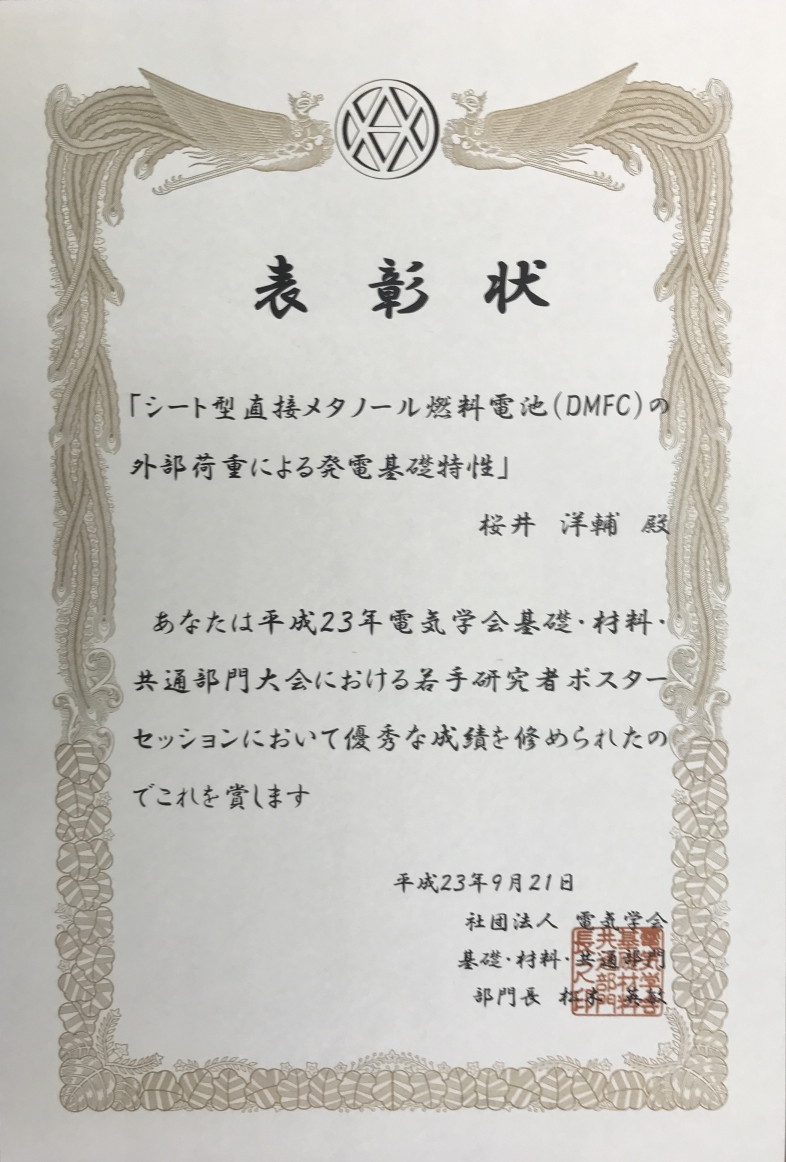 表彰状
「シート型直接メタノール燃料電池(DMFC)の
外部荷重による発電基礎特性」
桜井 洋輔 殿
あなたは平成23年電気学会基礎・材料・
共通部門大会における若手研究者ポスター
セッションにおいて優秀な成績を修められたの
でこれを賞します
平成23年9月21日
社団法人 電気学会
基礎・材料・共通部門
部門長 松末 英敏